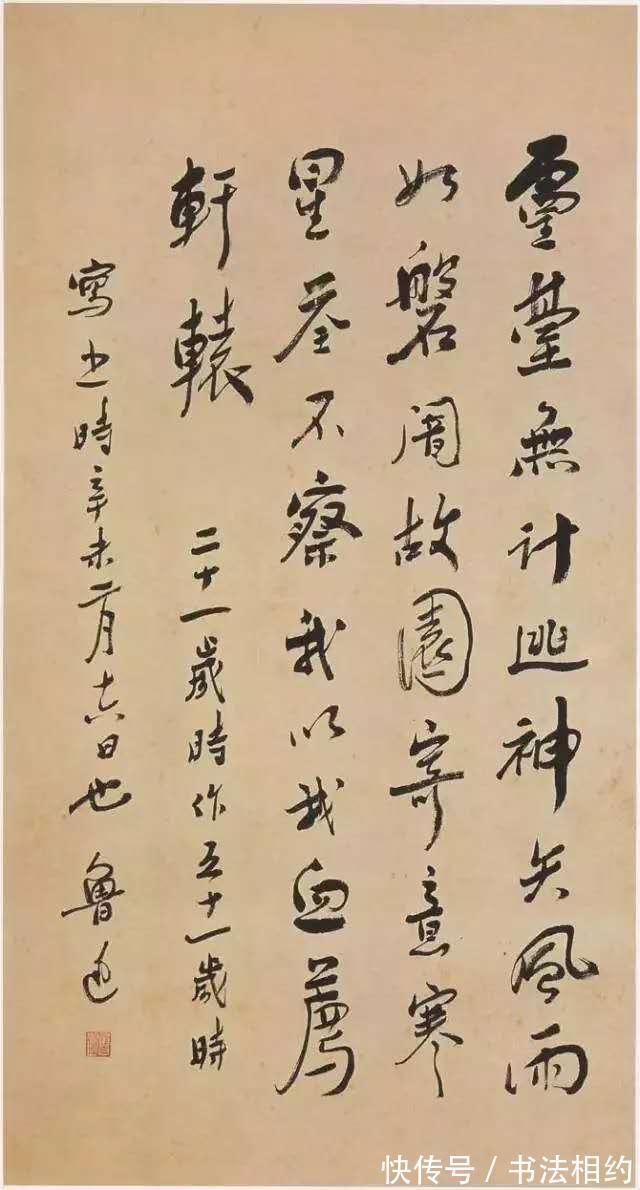 靈臺無計逃神矢風雨
如磐闇故園寄意寒
星荃不察我以我血薦
軒轅
二十一歲時作五十一歲時
寫之時辛未二月十六日也 魯迅
快传号/书法相约